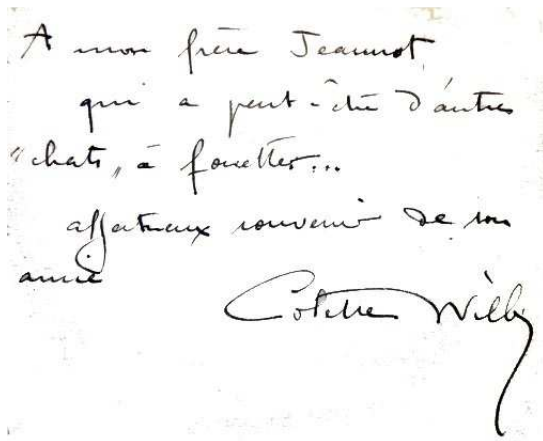 A mon frère Jeannot,
qui a peut-être d'autres
"chats" à fouetter...
affectueux souvenir de son
amie
Colette Willy